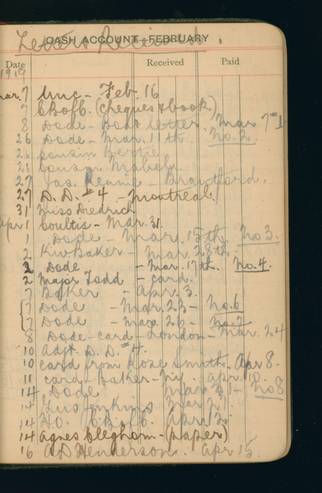 Letters Received.
CASH ACCOUNT - FEBRUARY
Date Received Paid
1919
Mar. 7 Unc - Feb. 16
7 C Boffb. (cheques & book)
8 Dode - Book letter. Mar. 7th 1
26 Dode - Mar. 11th No. 2.
Cousin Bertie
Cousin Mabel
27 Jas. - Brantford.
27 D. D. #4 - Montreal
31 Miss Diedrich
Apr 1 Coultis - Mar. 31.
1 Dode - Mar. 15th No 3.
2 Kiv Baker - Mar. 28th
2 Dode - Mar. 17th. No. 4.
2 Major Todd - card.
7 - Apr. 3.
7 Dode - Mar. 23 - No. 6
7 Dode - Mar. 26 - No. 7
8 Dode - card - London - Mar. 24
10 Adjt. D. D. #4.
10 card from Rose Smith. Apr 8.
11 card - Apr. 10.
14 Dode Mar. 31 - No 8
14
14 Ho.
14 Agnes Cleghorn - (paper)
16 A D Henderson. Apr 15.